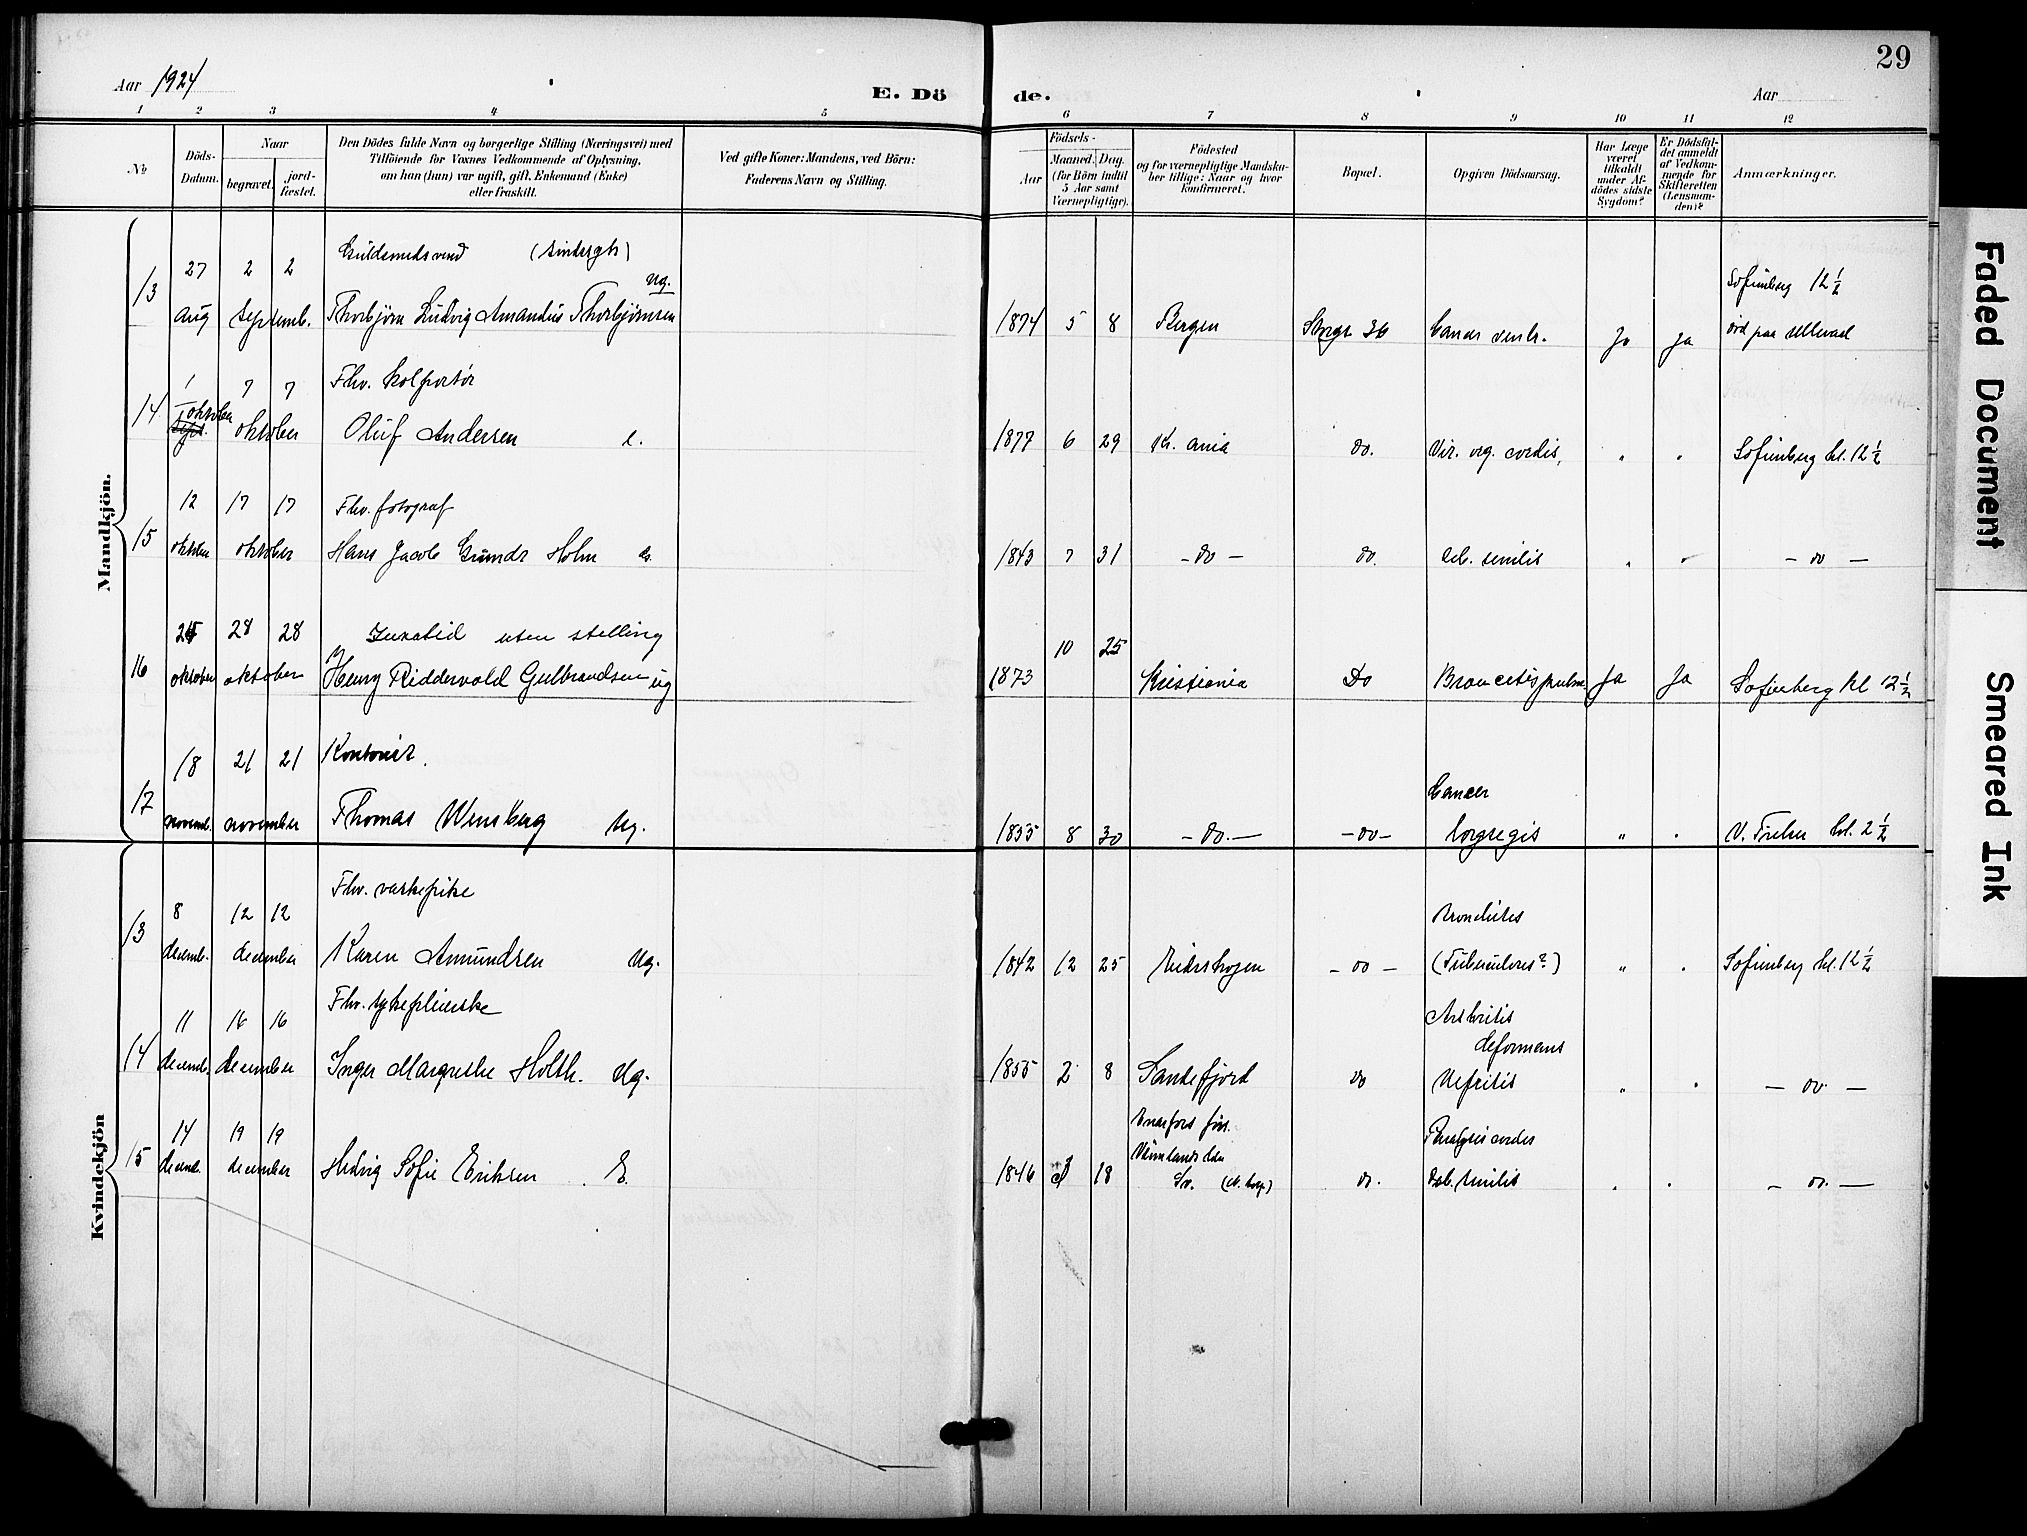 29
Aar 1924
E. Dö de.
Aar
1 2 3 4 5 6 7 8 9 10 11 12
No
Döds-
Datum.
Naar
begravet.
jord-
fæstet.
Den Dödes fulde Navn og borgerlige Stilling (Næringsvei) med
Tilföiende for Voxnes Vedkommende af Oplysning,
om han (hun) var ugift, gift, Enkemand (Enke)
eller fraskilt.
Ved gifte Koner: Mandens, ved Börn:
Faderens Navn og Stilling.
Födsels-
Aar
Maaned. Dag.
(for Börn indtil
5 Aar samt
Værnepligtige).
Födested
og for værnepligtige Mandska-
ber tillige: Naar og hvor
konfirmeret.
Bopæl.
Opgiven Dödsaarsag.
Har Læge
været
tilkaldt
under Af-
dödes sidste
Sygdom?
Er Dödsfal-
det anmeldt
af Vedkom-
mende for
Skifteretten
(Lensman-
den)?
Anmærkninger.
Mandkjön.
13 27 aug 2 2 septemb.
Guldsmedsvend
Ug.
Thorbjørn Ludvig Amandus Thorbjørnsen
1874 5 8 Bergen Storgt 36 Cancer ventr. Ja Ja
Sofienberg 12 1/2
ord paa Ullevaal
14 1 oktober sept. 7 7 oktober
Fhv. kolportør
Oluf Andersen e.
1877 6 29 Kr.ania do. Vit. org. cordis, " " Sofienberg kl. 12 1/2
15 12 oktober 17 17 oktober
Fhv. fotograf
Hans Jacob Grundt Holm e.
1843 7 31 - do - do. Deb. senilis " " - do -
16 25 oktober 28 28 oktober
Invalid uten stilling
Henry Riddervold Gulbrandsen ug
1873 10 25 Kristiania Do Ja Ja Sofienberg kl 12 1/2
17 18 novemb. 21 21 november
Kontorist.
Thomas Wensberg Ug.
1855 8 30 - do. - - do - Cancer
" " V. Frelser kl. 2 1/2
Kvindekjön
13 8 decemb. 12 12 december
Fhv. vaskepike
Karen Amundsen Ug.
1842 12 25 Eidskogen - do -
Bronchites
(Tuberculoses?) " " Sofienberg kl. 12 1/2
14 11 decemb. 16 16 december
Fhv. sykepleierske
Inger Margrethe Holth. Ug.
1855 2 8 Sandefjord do
Arthritis
deformans
Nefritis " " - do. -
15 14 decemb. 19 19 december
Hedvig Sofie Eriksen E.
1846 18
Sv.
do.
Paralysis cordis
Deb. senilis " " - do. -
Faded Document
Smeared Ink